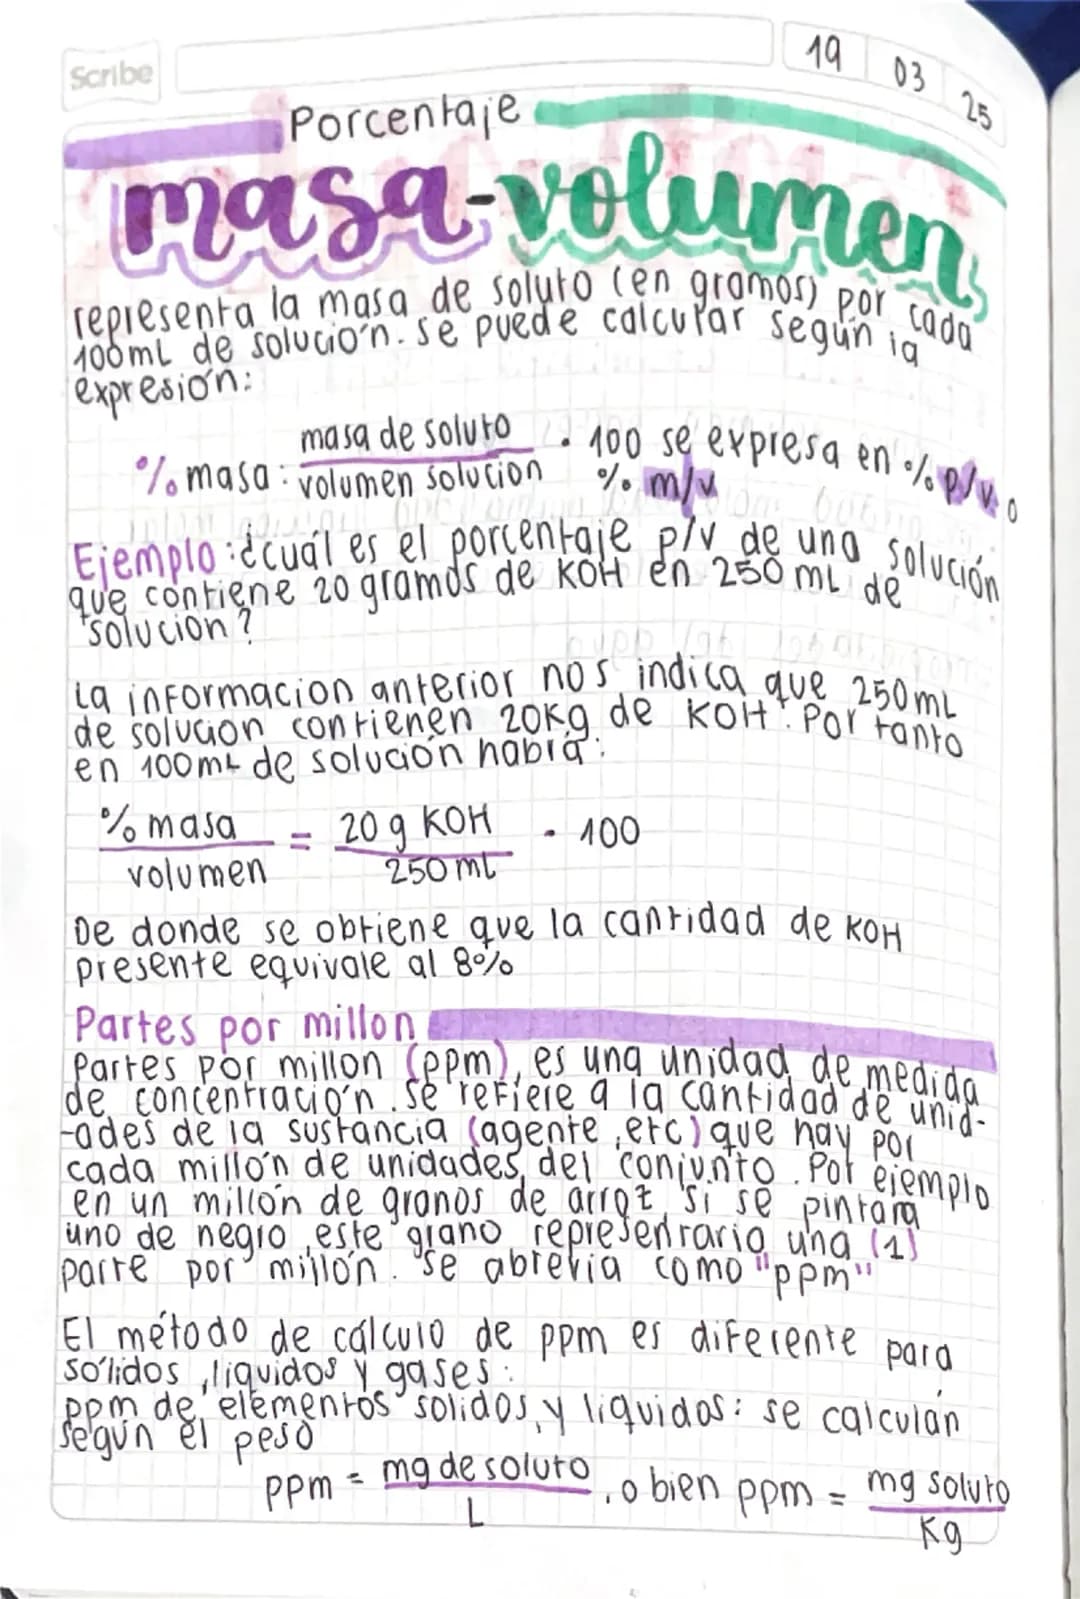 Scribe
19 03 25
Porcentaje
masa-volumen
representa la masa de soluto (en gramos) por cada
100mL de solución. se puede calcular según la
expresión:
% masa: masa de soluto / volumen solucion · 100 se expresa en % p/v o
% m/v
Ejemplo: ¿cuál es el porcentaje p/v de una solución
que contiene 20 gramos de KOH en 250 mL de
solucion?
La informacion anterior nos indica que 250mL
de solucion contienen 20Kg de KOH. Por tanto
en 100mL de solución habrá:
% masa / volumen = 20 g KOH / 250 mL · 100
De donde se obtiene que la cantidad de KOH
presente equivale al 8%
Partes por millon
Partes por millon (ppm), es una unidad de medida
de concentración. se refiere a la cantidad de unid-
-ades de la sustancia (agente, etc) que hay por
cada millón de unidades del conjunto. Por ejemplo
en un millón de granos de arroz si se pintara
uno de negro, este grano representaria una (1)
parte por millón. Se abrevia como "ppm"
El método de cálculo de ppm es diferente para
sólidos, liquidos y gases:
ppm de elementos solidos y liquidos: se calculan
según el peso
ppm = mg de soluto / L, o bien ppm = mg soluto / Kg